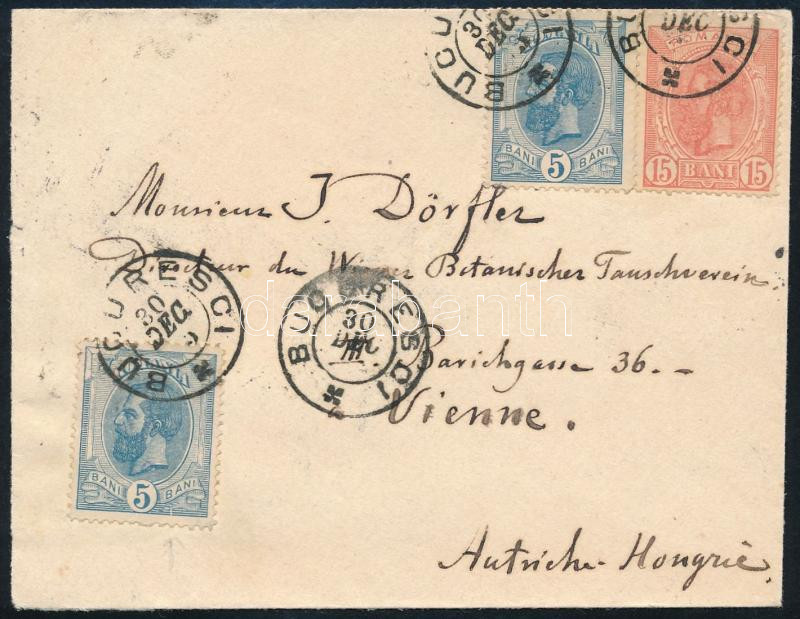 BUCU
30
DEC
ROMANIA
BANI 5 BANI
BU SCI
DEC
ROMA
15 BANI 15
Monsieur J. Dörfler
Directeur du Wiener Botanischer Tauschverein
BUCURESCI
30
DEC
BUCURESCI
30
DEC
III
darabanth
Barichgasse 36.–
Vienne.
BANI 5 BANI
Autriche-Hongrie